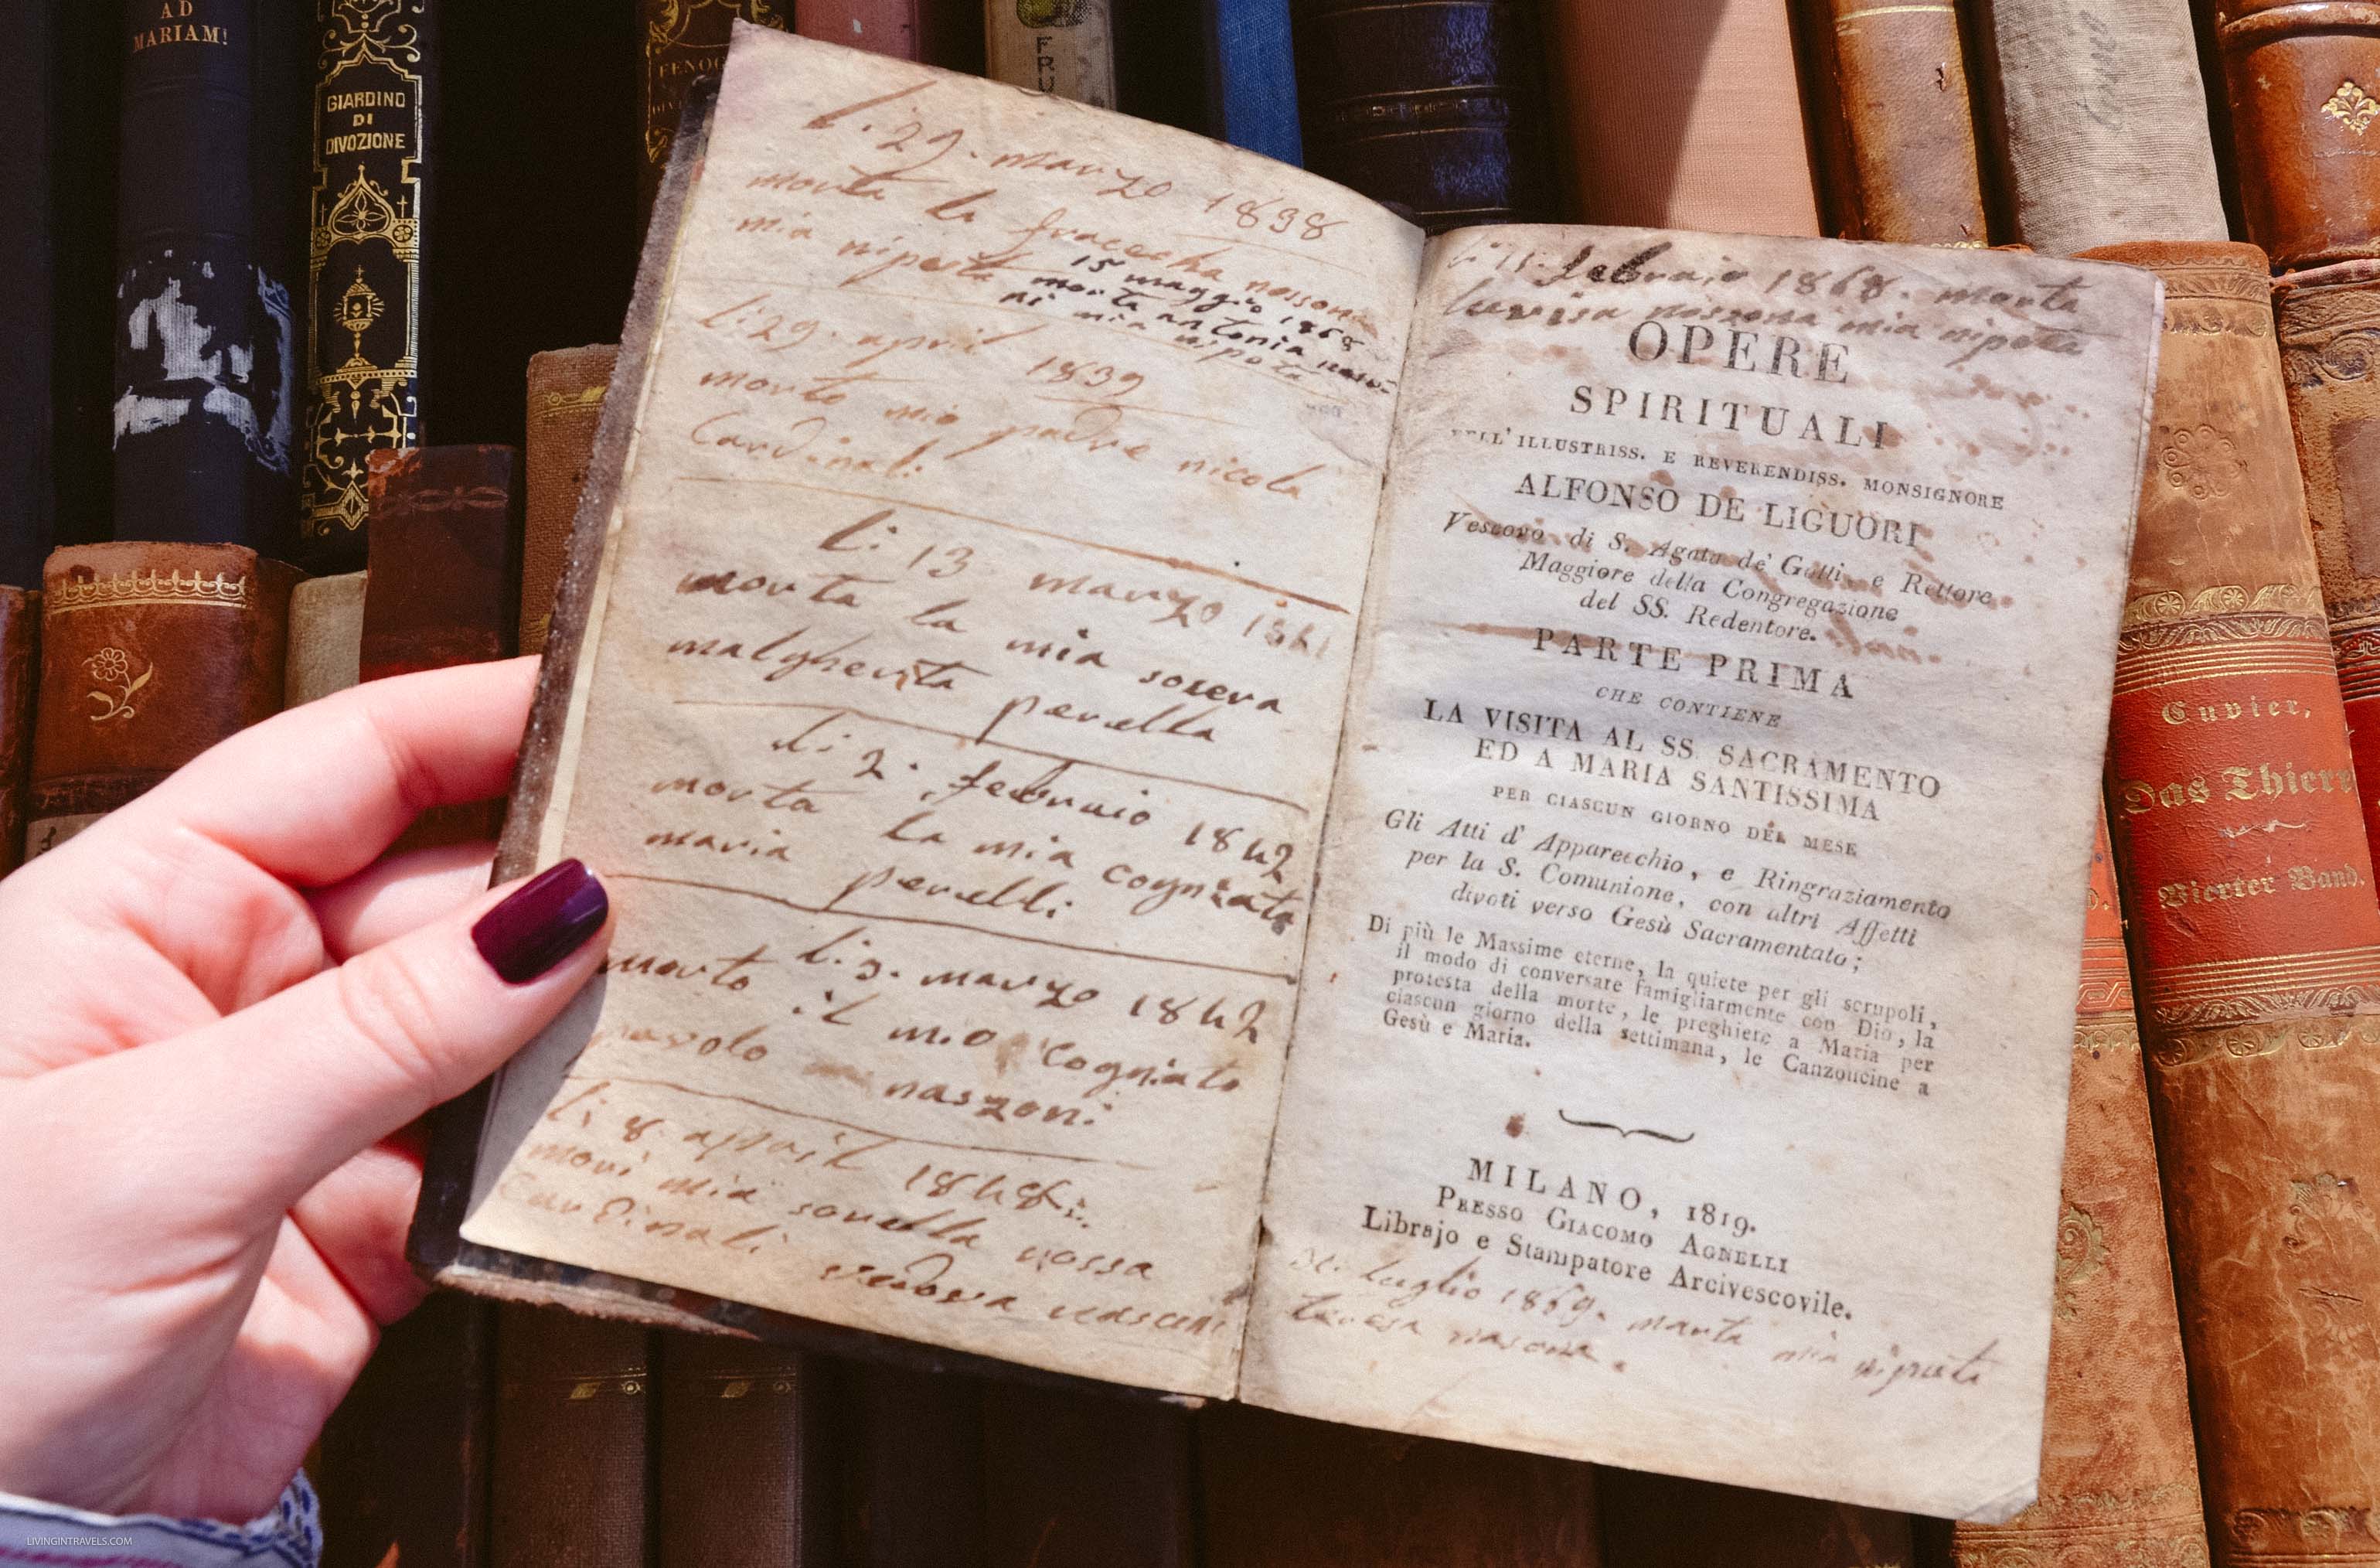 AD
MARIAM!
GIARDINO
DI
DIVOZIONE
FENOG
FRU
l: 29. marzo 1838
morta la
mia nipota
15 maggio 1868
morta antonia
mia nipota
l: 29. april 1839
morto mio padre nicola
Cardinali
l: 13 marzo 1841
morta la mia socera
malgherita perella
l: 2. febraio 1842
morta la mia cogniata
maria perelli
l: 3. marzo 1842
morto il mio cogniato
naszoni
l: 8 april 1848
mori mia sorella rossa
Cardinali vedova
febraio 1868. morta
luvisa nozzona mia nipota
OPERE
SPIRITUALI
DELL' ILLUSTRISS. E REVERENDISS. MONSIGNORE
ALFONSO DE LIGUORI
Vescovo di S. Agata de' Gotti, e Rettore
Maggiore della Congregazione
del SS. Redentore.
PARTE PRIMA
CHE CONTIENE
LA VISITA AL SS. SACRAMENTO
ED A MARIA SANTISSIMA
PER CIASCUN GIORNO DEL MESE
Gli Atti d' Apparecchio, e Ringraziamento
per la S. Comunione, con altri Affetti
divoti verso Gesù Sacramentato;
Di più le Massime eterne, la quiete per gli scrupoli,
il modo di conversare famigliarmente con Dio, la
protesta della morte, le preghiere a Maria per
ciascun giorno della settimana, le Canzoncine a
Gesù e Maria.
MILANO, 1819.
PRESSO GIACOMO AGNELLI
Librajo e Stampatore Arcivescovile.
luglio 1869. marta mia nipota
teresa nasona.
Cuvier,
Das Thierr
Vierter Band.
LIVINGINTRAVELS.COM